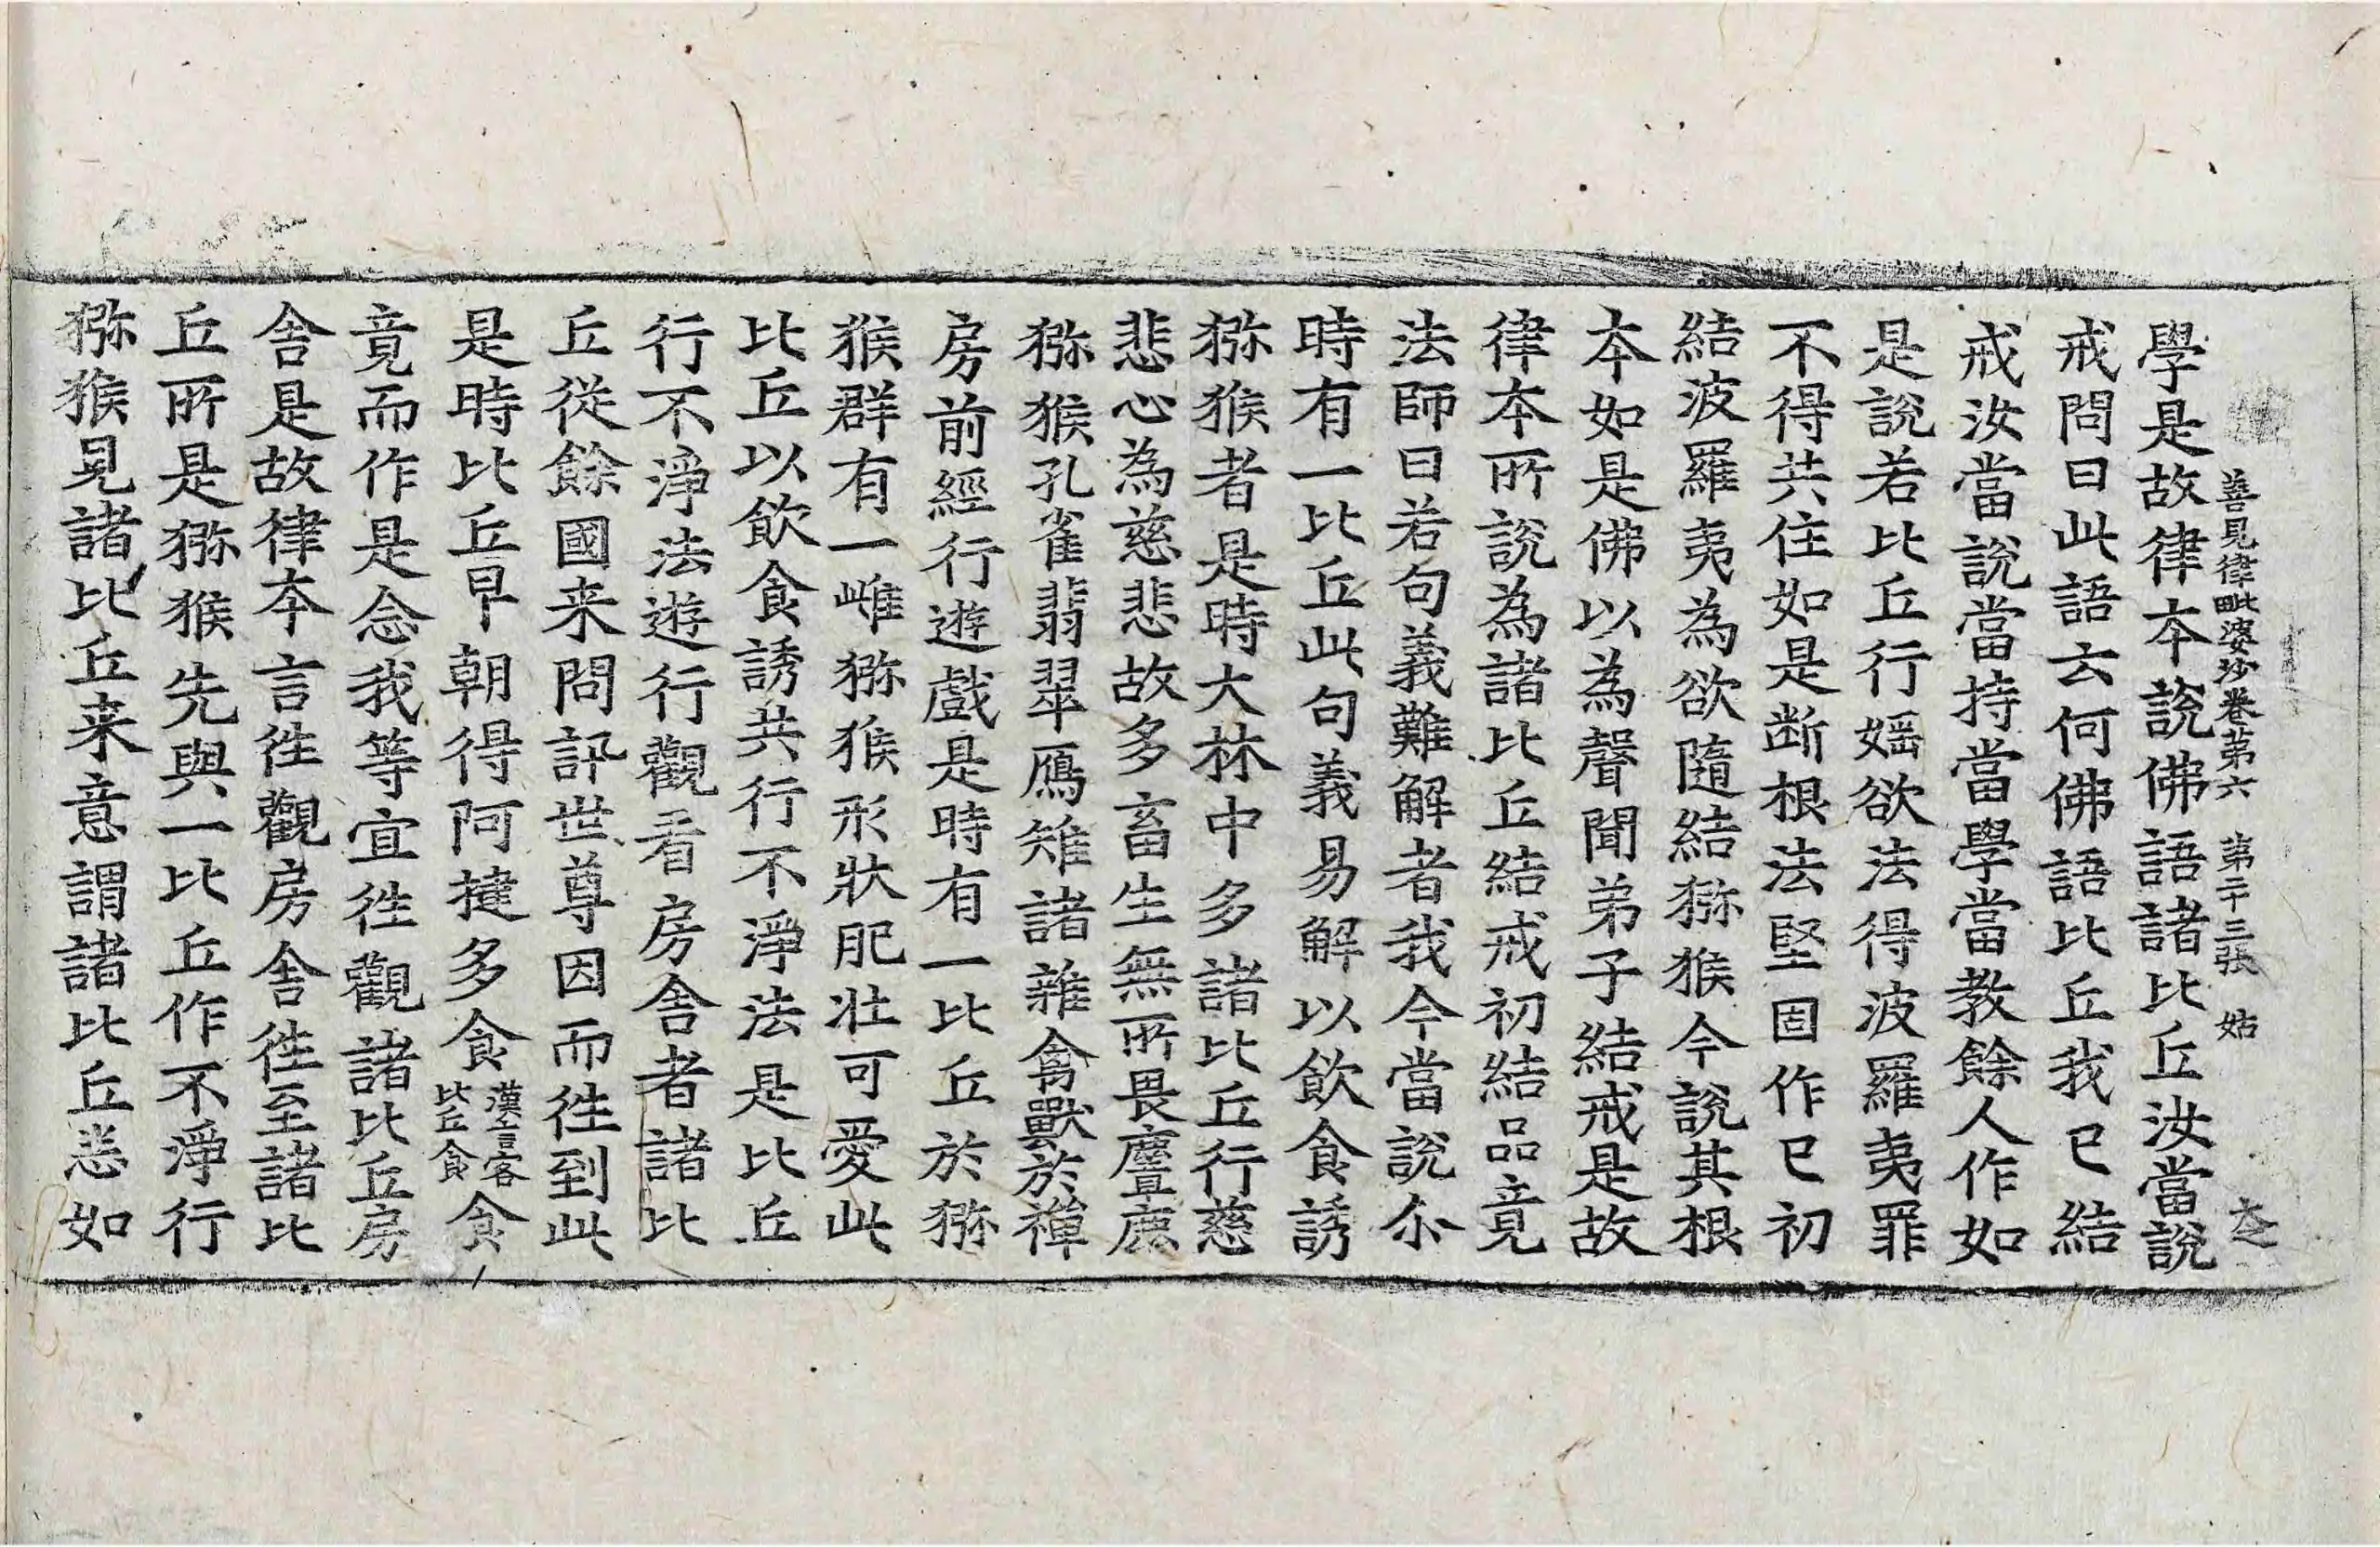 善見律毗婆沙卷第六　第二十三張　姑
學是故律本說佛語諸比丘汝當說
戒問曰此語云何佛語比丘我已結
戒汝當說當持當學當教餘人作如
是說若比丘行婬欲法得波羅夷罪
不得共住如是断根法堅固作已初
結波羅夷為欲隨結猕猴今說其根
本如是佛以為聲聞弟子結戒是故
律本所說為諸比丘結戒初結品竟
法師曰若句義難解者我今當說尒
時有一比丘此句義易解以飲食誘
猕猴者是時大林中多諸比丘行慈
悲心為慈悲故多畜生無所畏麞鹿
猕猴孔雀翡翠鴈雉諸雜禽獸於禪
房前經行遊戲是時有一比丘於猕
猴群有一雌猕猴形狀肥壯可愛此
比丘以飲食誘共行不淨法是比丘
行不淨法遊行觀看房舍者諸比
丘從餘國来問訊世尊因而徃到此
是時比丘早朝得阿揵多食漢言客比丘食食
竟而作是念我等宜徃觀諸比丘房
舍是故律本言徃觀房舍徃至諸比
丘所是猕猴先與一比丘作不淨行
猕猴見諸比丘来意謂諸比丘悉如